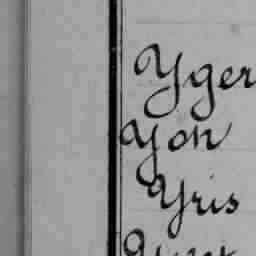 Yger
Yon
Yris